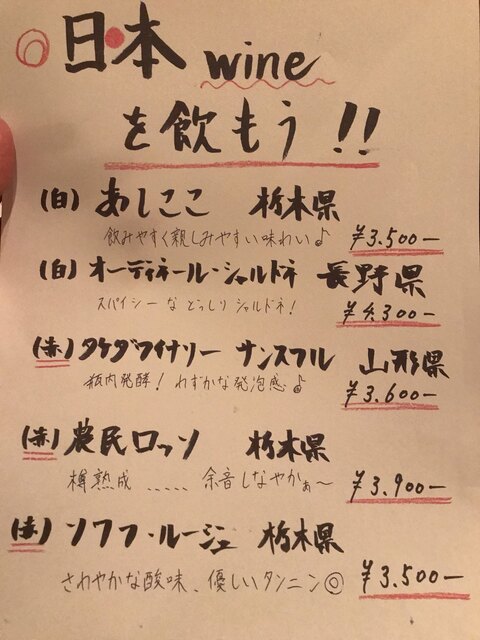 日本 wine
を飲もう!!
(白) あしここ 栃木県
飲みやすく親しみやすい味わい♪ ¥3.500ー
(白) オーディネール・シャルドネ 長野県
スパイシー な どっしり シャルドネ! ¥4.300ー
(赤) タケダワイナリー サンスフル 山形県
瓶内発酵! わずかな発泡感♪ ¥3.600ー
(赤) 農民ロッソ 栃木県
樽熟成 ..... 余音しなやかぁ〜 ¥3.900ー
(赤) ソフフ・ルージュ 栃木県
さわやかな酸味、優しいタンニン◎ ¥3.500ー